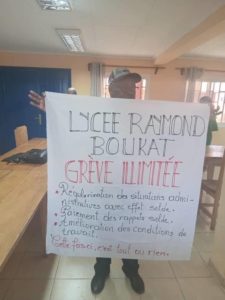 LYCEE RAYMOND
BOUKAT
GRÈVE ILLIMITÉE
• Régularisation des situations admi-
nistratives avec effet solde.
• Paiement des rappels solde.
• Amélioration des conditions de
travail.
Cette fois ci, c'est tout ou rien.